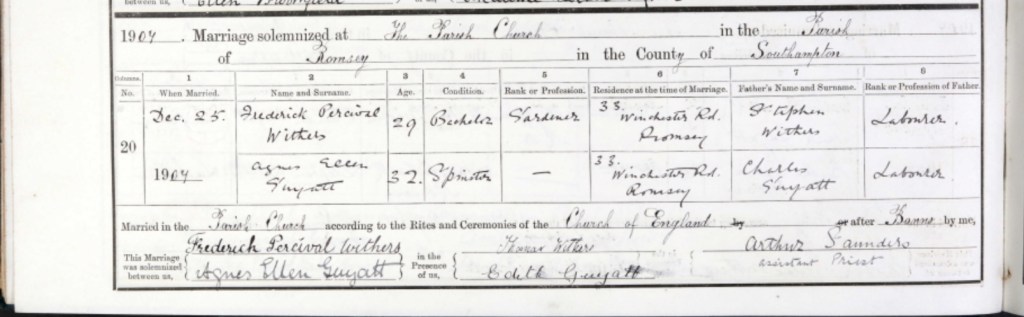 between us,
1907. Marriage solemnized at The Parish Church in the Parish
of Romsey in the County of Southampton
Columns. 1 2 3 4 5 6 7 8
No. When Married. Name and Surname. Age. Condition. Rank or Profession. Residence at the time of Marriage. Father's Name and Surname. Rank or Profession of Father.
20 Dec. 25. 1907 Frederick Percival Withers 29 Bachelor Gardener 33. Winchester Rd. Romsey Stephen Withers Labourer.
Agnes Ellen Guyatt 32. Spinster — 33. Winchester Rd. Romsey Charles Guyatt Labourer
Married in the Parish Church according to the Rites and Ceremonies of the Church of England by or after Banns by me,
This Marriage was solemnized between us, Frederick Percival Withers in the Presence of us, Thomas Withers Arthur Saunders
Agnes Ellen Guyatt Edith Guyatt assistant Priest